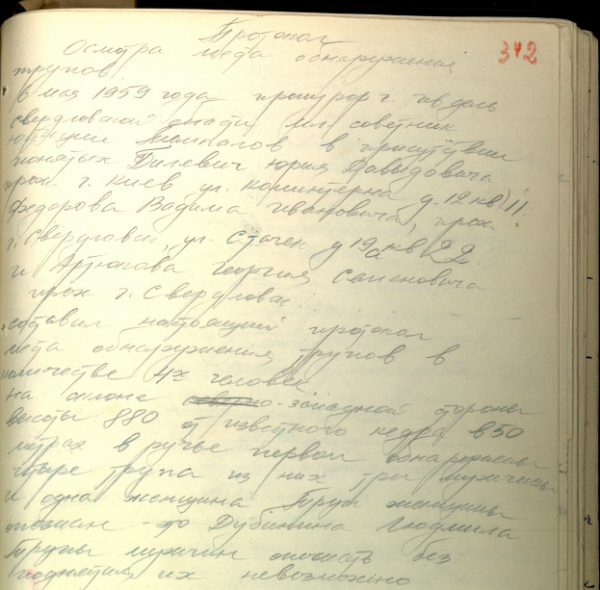 342
Протокол
Осмотра места обнаружения
трупов.
6 мая 1959 года прокурор г. Ивдель
свердловской области мл советник
юстиции Темпалов в присутствии
понятых Бялевич Юрия Давыдовича
прож. г. Киев ул. Коминтерна д. 12 кв 11.
Федорова Вадима Ивановича, прож
г. Свердловск, ул. Стачек д 19а кв 22.
и Артюкова Георгия Семеновича
прож г. Свердловск.
составил настоящий протокол
места обнаружения трупов в
количестве 4х человек
На склоне западной стороны
высоты 880 от известного кедра в 50
метрах в ручье первом обнаружены
четыре трупа из них три мужчины
и одна женщина. Труп женщины
опознан - это Дубинина Людмила
Трупы мужчин опознать без
поднятия их невозможно